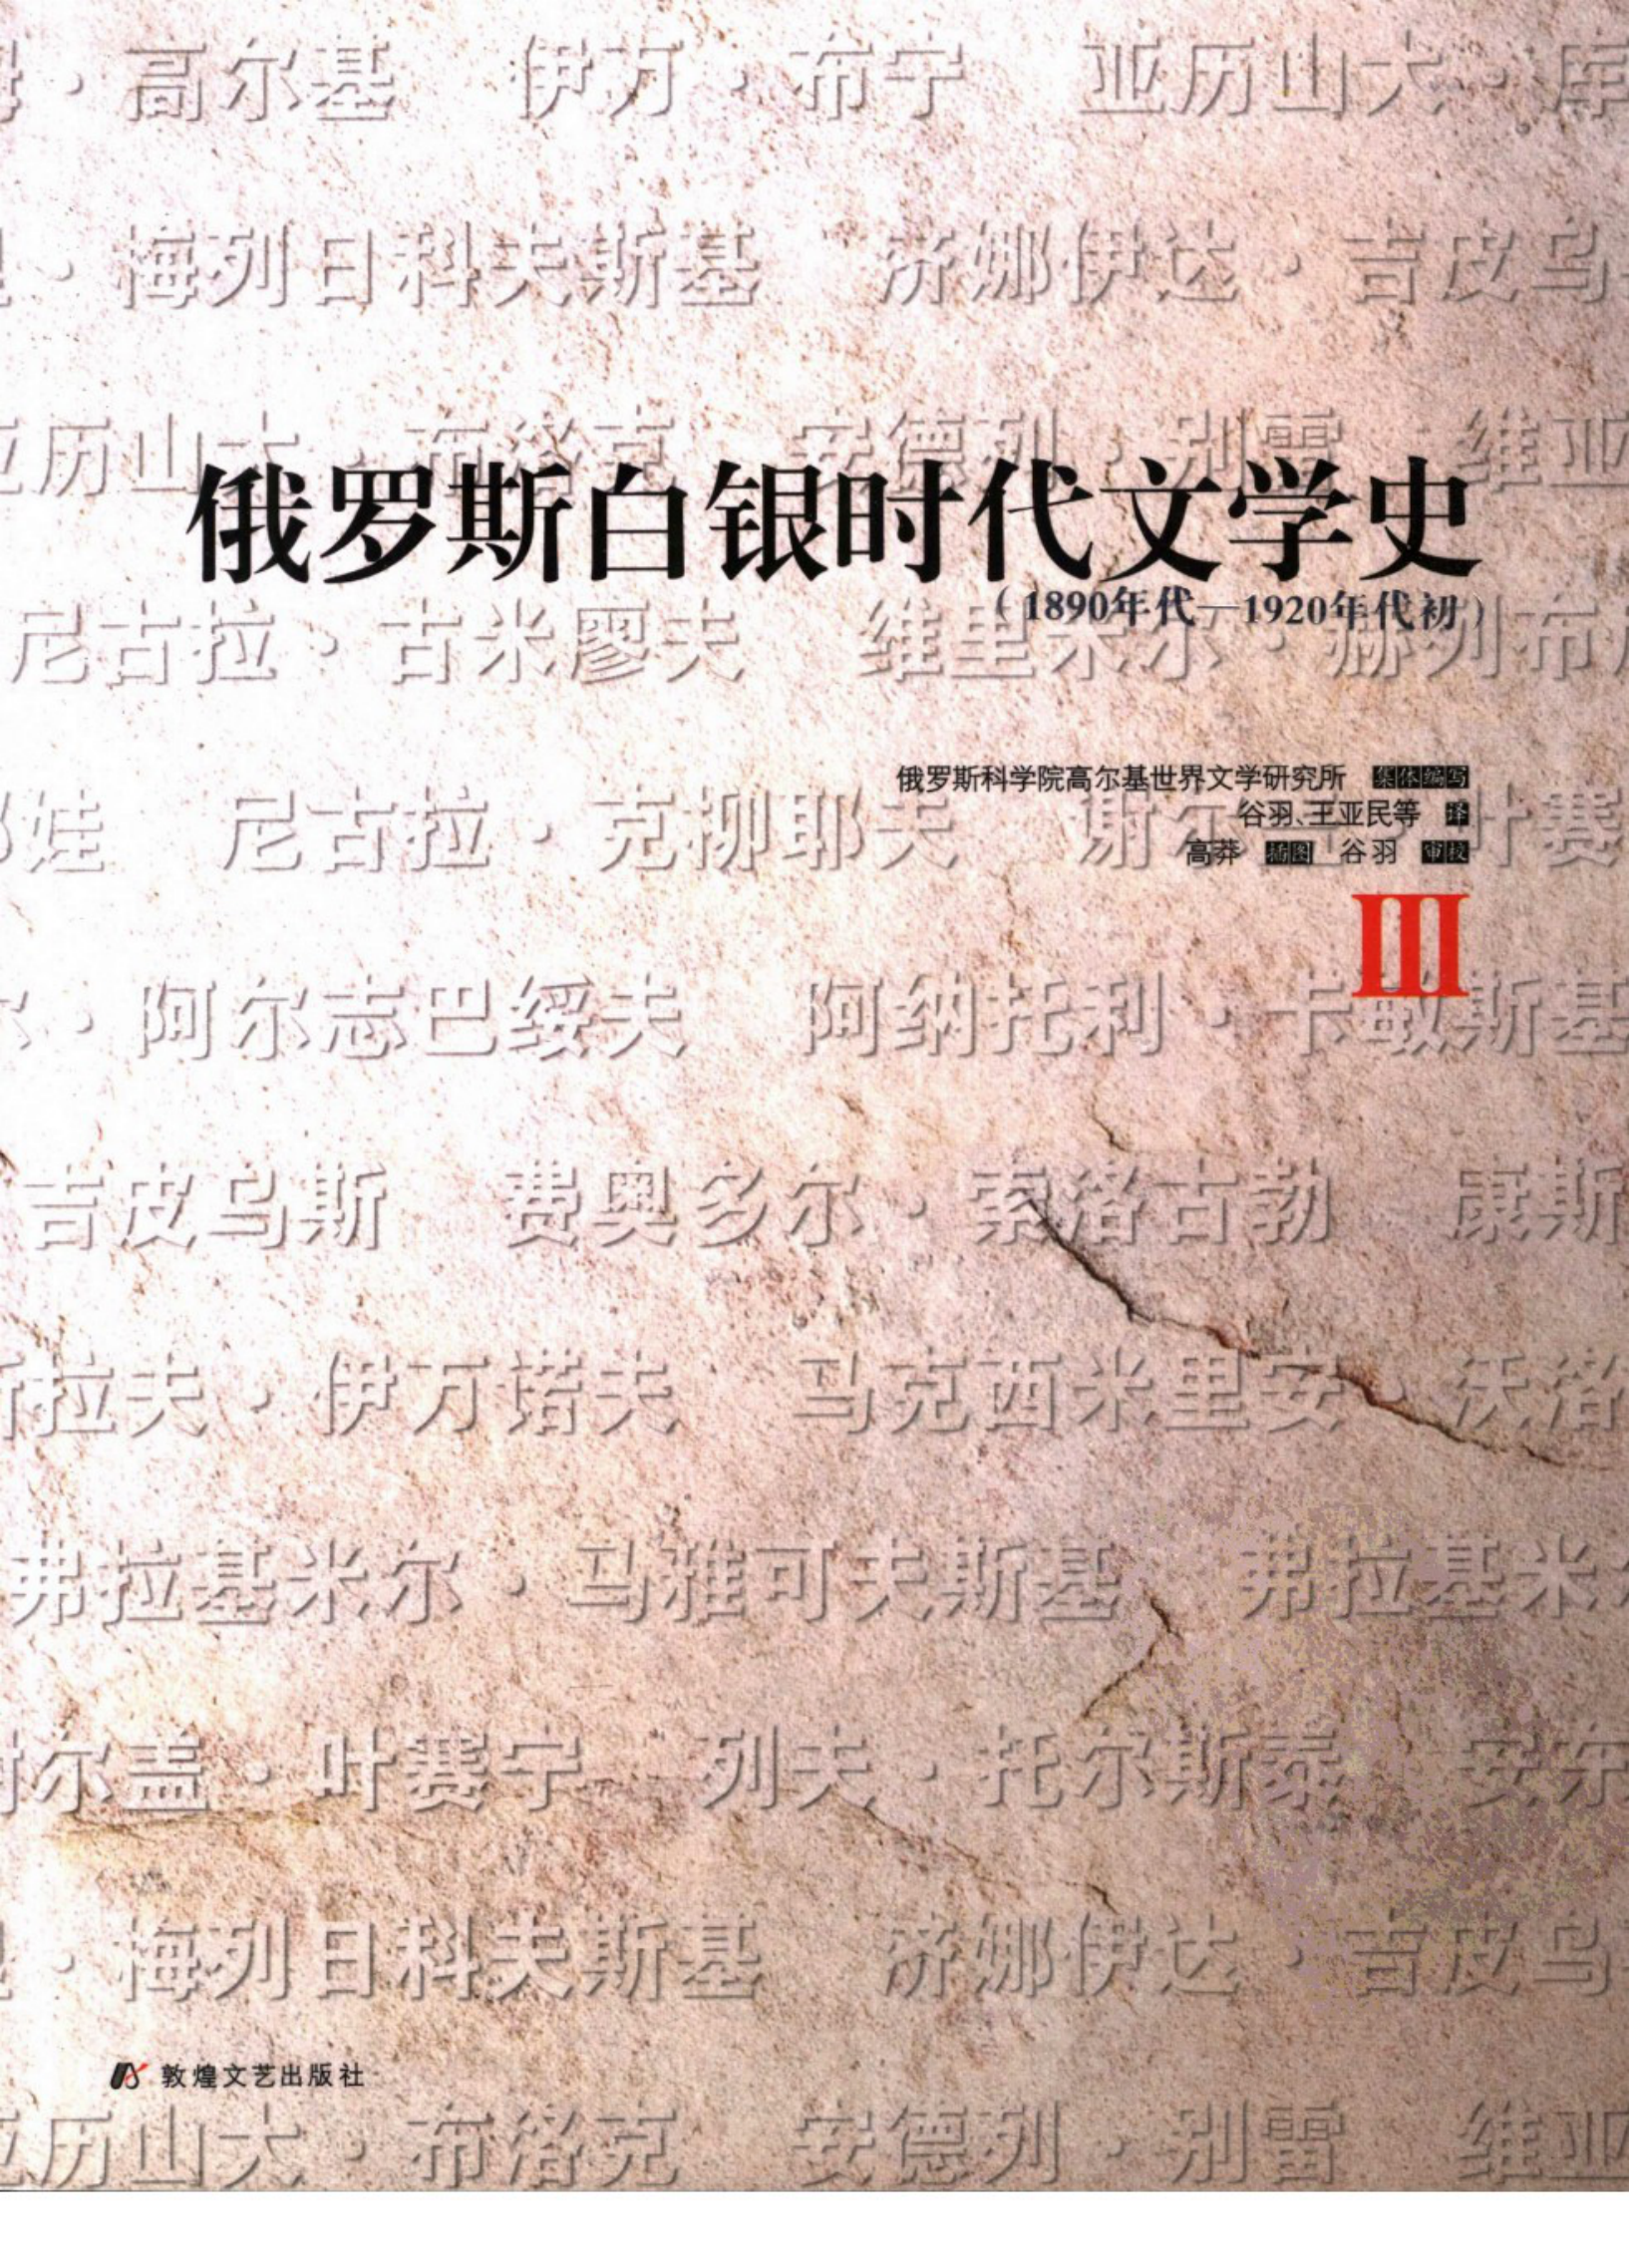 ·高尔基 伊万·布宁 亚历山大·库
·梅列日科夫斯基 济娜伊达·吉皮乌
历山大·布洛克 安德列·别雷 维亚
俄罗斯白银时代文学史
(1890年代—1920年代初)
尼古拉·古米廖夫 维里米尔·赫列布
俄罗斯科学院高尔基世界文学研究所 集体编写
谷羽、王亚民等 译
娃 尼古拉·克柳耶夫 谢尔 叶赛
高莽 插图 谷羽 审校
III
·阿尔志巴绥夫 阿纳托利·卡敏斯基
吉皮乌斯 费奥多尔·索洛古勃 康斯
拉夫·伊万诺夫 马克西米里安·沃洛
弗拉基米尔·马雅可夫斯基 弗拉基米
尔盖·叶赛宁 列夫·托尔斯泰 安东
·梅列日科夫斯基 济娜伊达·吉皮乌
敦煌文艺出版社
历山大·布洛克 安德列·别雷 维亚